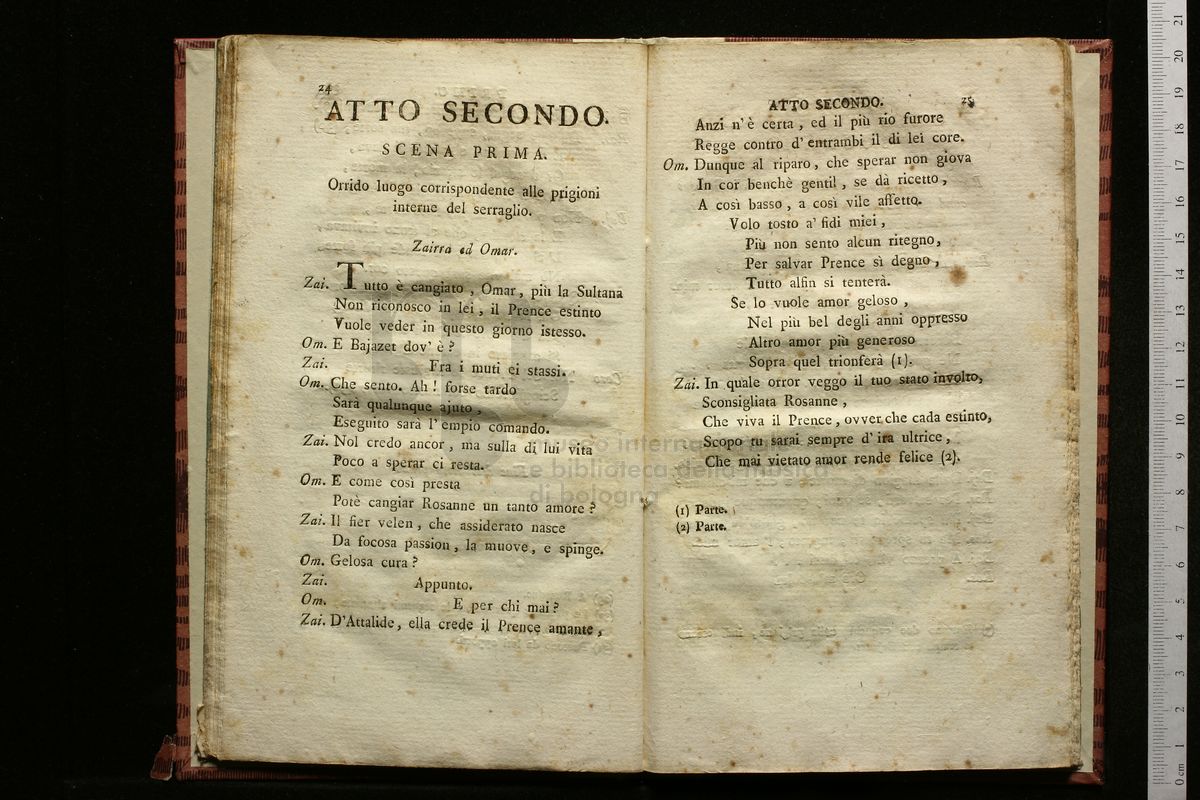 24
ATTO SECONDO.
SCENA PRIMA.
Orrido luogo corrispondente alle prigioni
interne del serraglio.
Zairra ed Omar.
Zai. Tutto è cangiato, Omar, più la Sultana
Non riconosco in lei, il Prence estinto
Vuole veder in questo giorno istesso.
Om. E Bajazet dov' è?
Zai. Fra i muti ei stassi.
Om. Che sento. Ah! forse tardo
Sarà qualunque ajuto,
Eseguito sarà l'empio comando.
Zai. Nol credo ancor, ma sulla di lui vita
Poco a sperar ci resta.
Om. E come così presta
Potè cangiar Rosanne un tanto amore?
Zai. Il fier velen, che assiderato nasce
Da focosa passion, la muove, e spinge.
Om. Gelosa cura?
Zai. Appunto.
Om. E per chi mai?
Zai. D'Attalide, ella crede il Prence amante,
ATTO SECONDO. 25
Anzi n'è certa, ed il più rio furore
Regge contro d'entrambi il di lei core.
Om. Dunque al riparo, che sperar non giova
In cor benchè gentil, se dà ricetto,
A così basso, a così vile affetto.
Volo tosto a' fidi miei,
Più non sento alcun ritegno,
Per salvar Prence sì degno,
Tutto alfin si tenterà.
Se lo vuole amor geloso,
Nel più bel degli anni oppresso
Altro amor più generoso
Sopra quel trionferà (1).
Zai. In quale orror veggo il tuo stato involto,
Sconsigliata Rosanne,
Che viva il Prence, ovver che cada estinto,
Scopo tu sarai sempre d'ira ultrice,
Che mai vietato amor rende felice (2).
(1) Parte.
(2) Parte.
museo internazionale
e biblioteca della musica
di bologna
0 cm 1 2 3 4 5 6 7 8 9 10 11 12 13 14 15 16 17 18 19 20 21